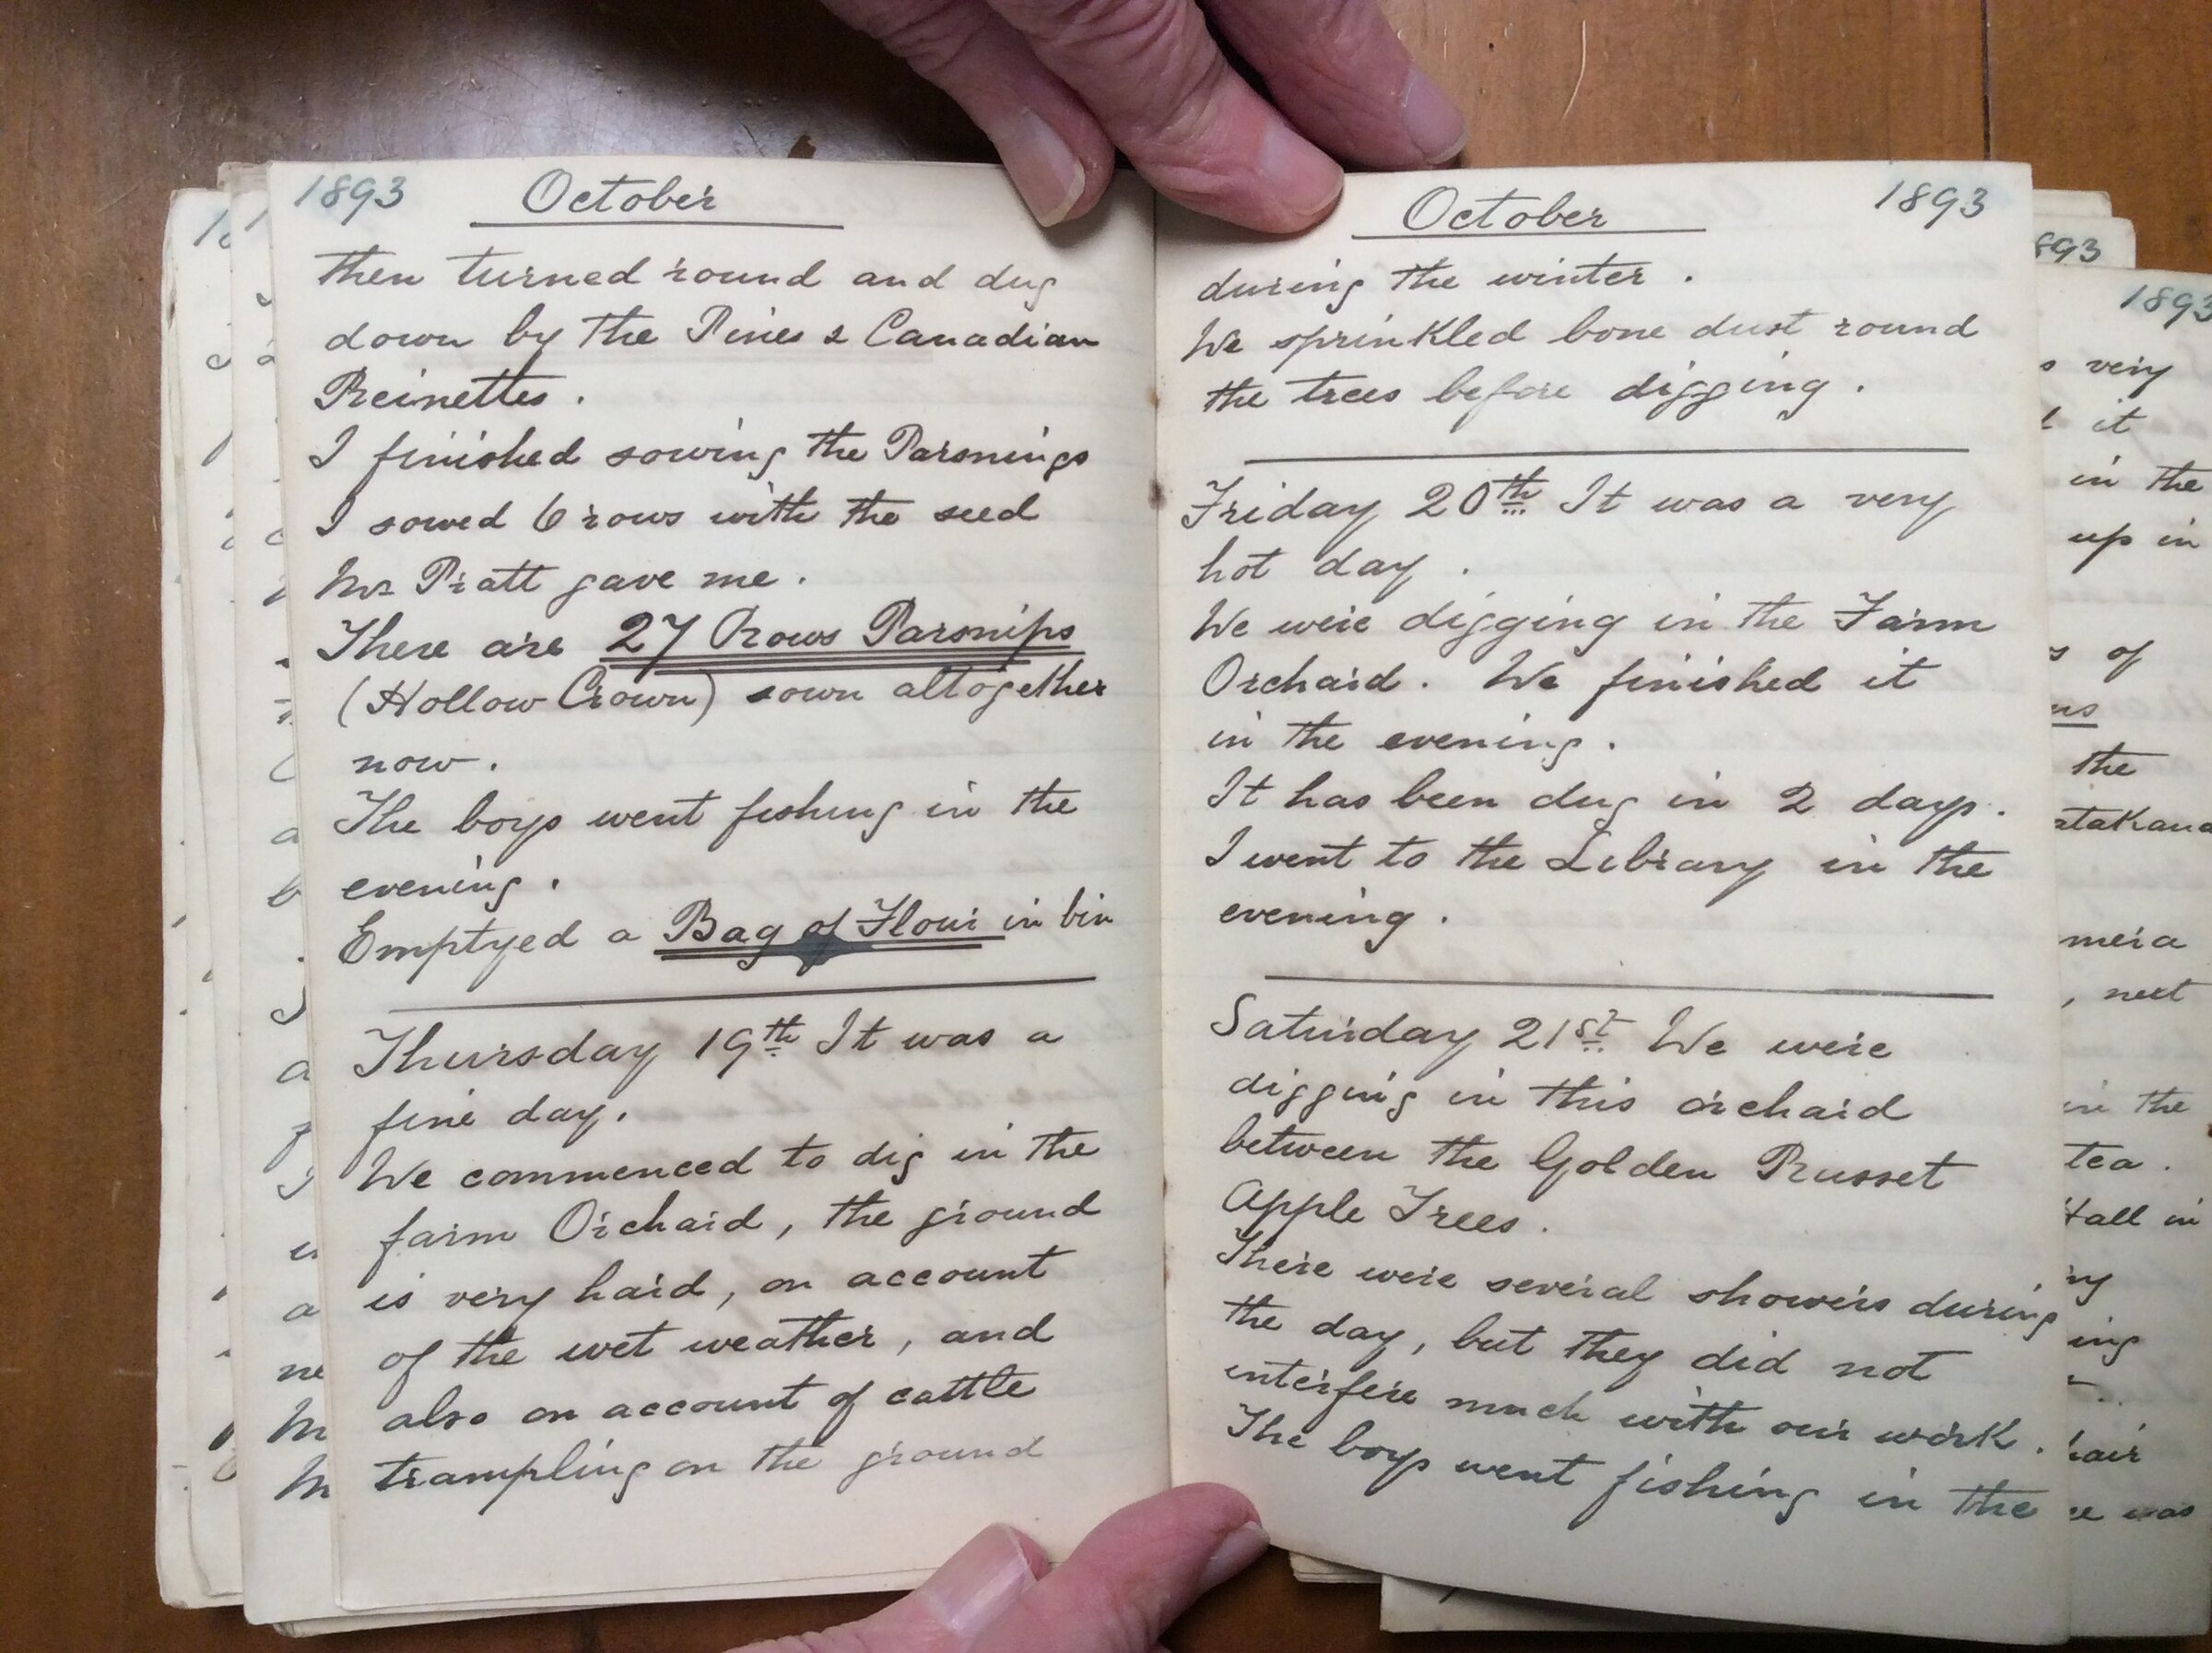 1893 October
then turned round and dug
down by the Pines & Canadian
Reinettes.
I finished sowing the Parsnips
I sowed 6 rows with the seed
Mr Pratt gave me.
There are 27 Rows Parsnips
(Hollow Crown) sown altogether
now.
The boys went fishing in the
evening.
Emptyed a Bag of Flour in bin
Thursday 19th It was a
fine day.
We commenced to dig in the
farm Orchard, the ground
is very hard, on account
of the wet weather, and
also on account of cattle
trampling on the ground
October 1893
during the winter.
We sprinkled bone dust round
the trees before digging.
Friday 20th It was a very
hot day.
We were digging in the Farm
Orchard. We finished it
in the evening.
It has been dug in 2 days.
I went to the Library in the
evening.
Saturday 21st We were
digging in this orchard
between the Golden Russet
Apple Trees.
There were several showers during
the day, but they did not
interfere much with our work.
The boys went fishing in the
893
1893
very
it
in the
up in
of
the
next
in the
tea.
in
was